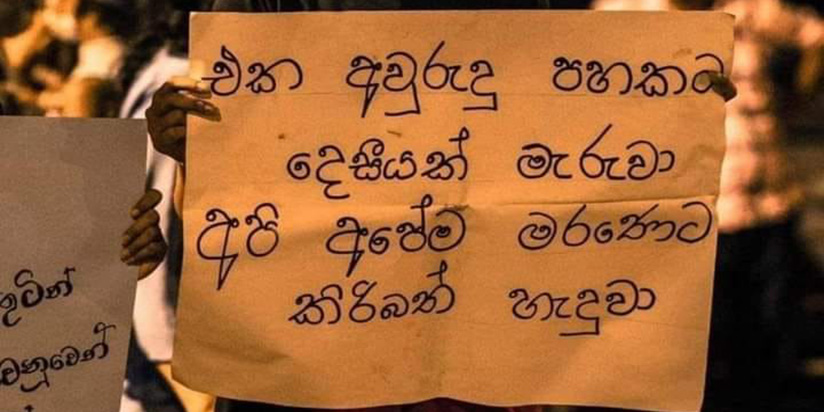 එක අවුරුදු පහකට
දෙසීයක් මැරුවා
අපි අපේම මරණෙට
කිරිබත් හැදුවා